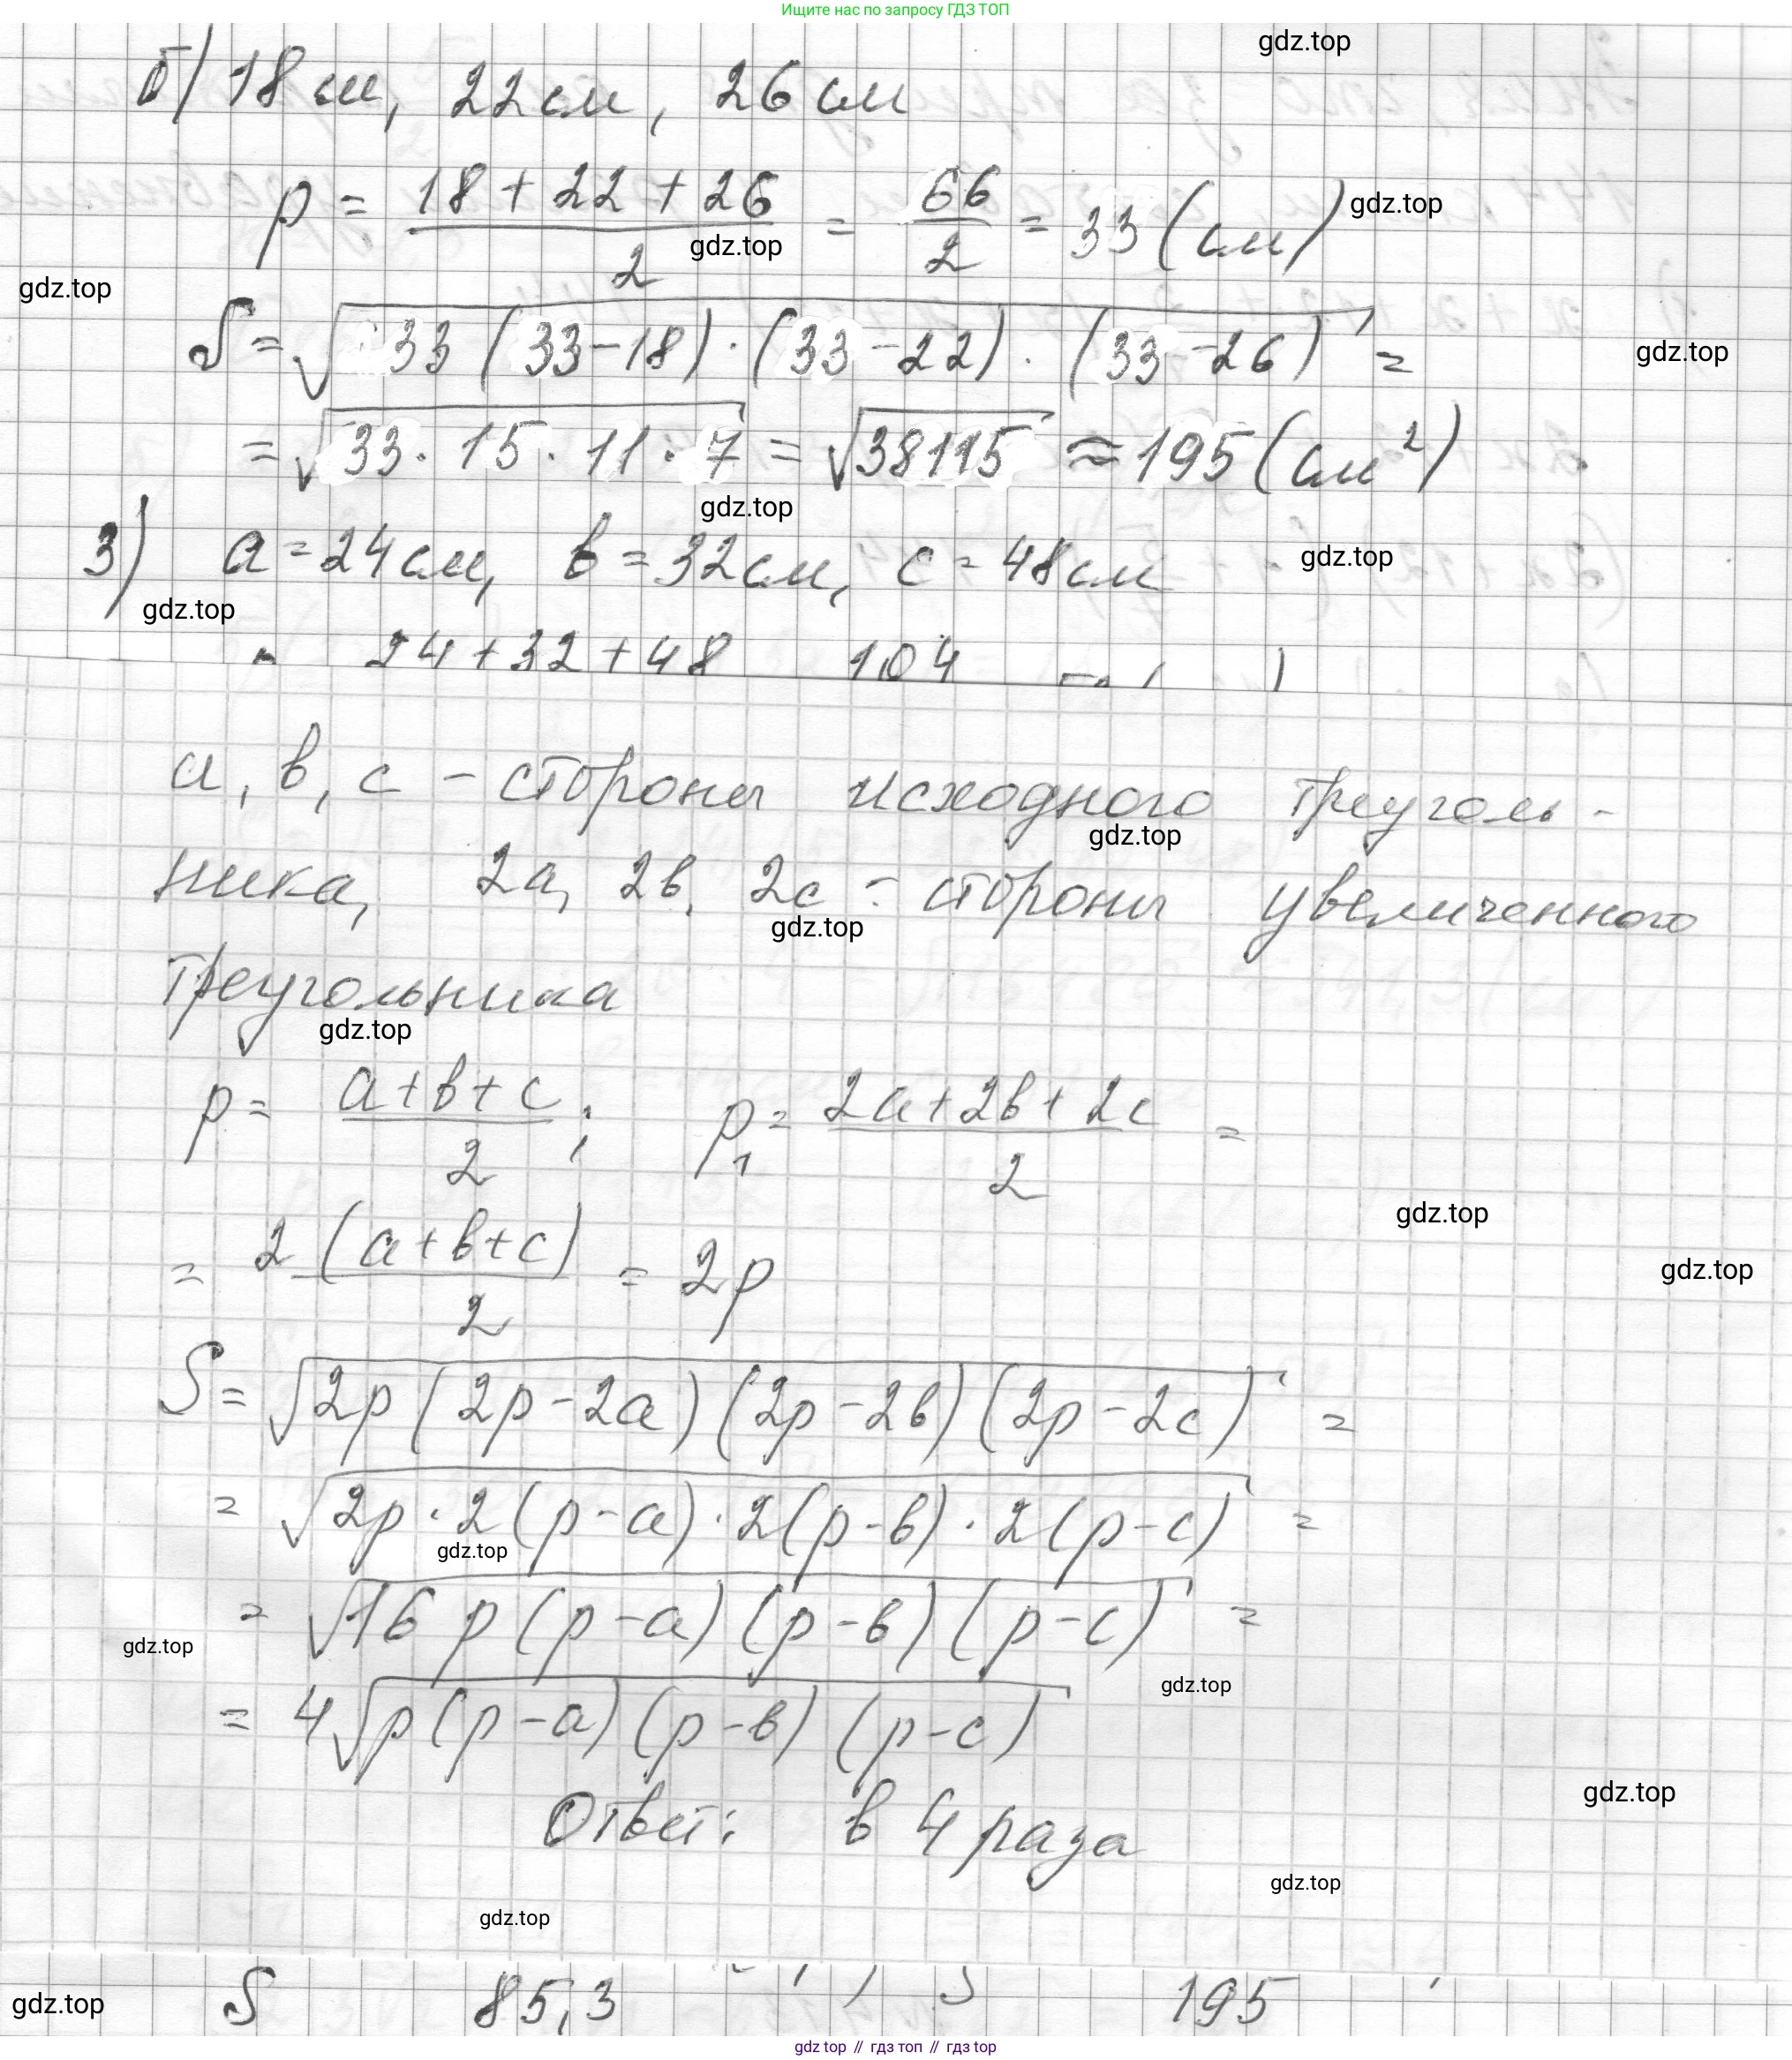 Ищите нас по запросу ГДЗ ТОП
gdz.top
б) 18 см, 22 см, 26 см
p = (18 + 22 + 26)/2 = 66/2 = 33 (см)
gdz.top
gdz.top
gdz.top
S = √(33 (33 - 18) · (33 - 22) · (33 - 26)) =
gdz.top
= √(33 · 15 · 11 · 7) = √38115 ≈ 195 (см²)
gdz.top
3) a = 24 см, в = 32 см, c = 48 см
gdz.top
gdz.top
24 + 32 + 48 104
а, в, с - стороны исходного треуголь-
gdz.top
ника, 2а, 2в, 2с - стороны увеличенного
gdz.top
треугольника
gdz.top
p = (a + в + c)/2 ; p₁ = (2a + 2в + 2c)/2 =
gdz.top
= 2 (a + в + c)/2 = 2p
gdz.top
S = √(2p (2p - 2a) (2p - 2в) (2p - 2c)) =
= √(2p · 2 (p - a) · 2 (p - в) · 2 (p - c)) =
gdz.top
= √(16 p (p - a) (p - в) (p - c)) =
gdz.top
gdz.top
= 4√(p (p - a) (p - в) (p - c))
gdz.top
Ответ: в 4 раза
gdz.top
gdz.top
gdz.top
S 85,3 195
gdz top // гдз топ // гдз top